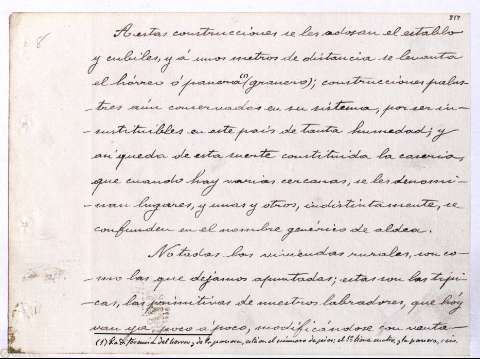 217
8
A estas construcciones se les adosan el establo
y cubiles, y á unos metros de distancia se levanta
el hórreo ó panera (1) (granero); construcciones palus-
-tres aún conservadas en su sistema, por ser in-
-sustituibles en este país de tanta humedad; y
así queda de esta suerte constituida la casería,
que cuando hay varias cercanas, se les denomi-
-nan lugares, y unas y otros, indistintamente, se
confunden en el nombre genérico de aldea.
No todas las viviendas rurales, son co-
-mo las que dejamos apuntadas; estas son las típi-
-cas, las primitivas de nuestros labradores, que hoy
van ya poco á poco, modificándose con venta-
(1) La diferencia del hórreo, de la panera, está en el número de pies; el 1º tiene cuatro, y la panera, seis.